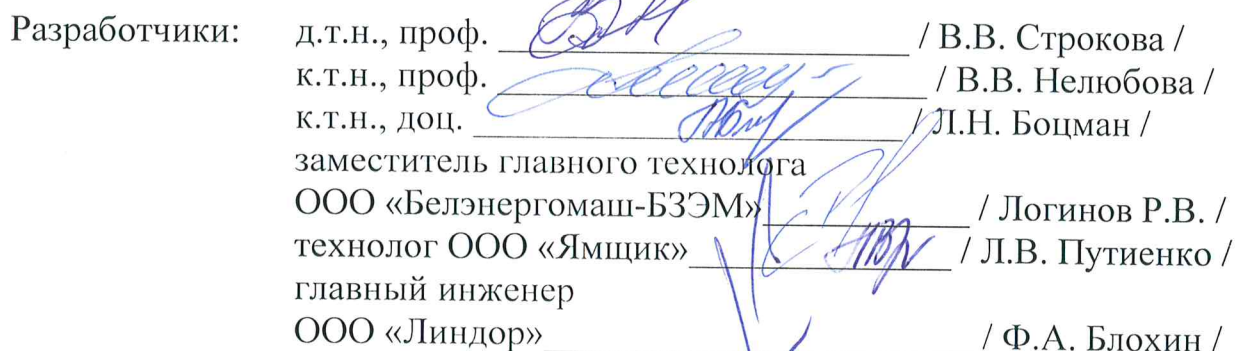 Разработчики: д.т.н., проф. / В.В. Строкова /
к.т.н., проф. / В.В. Нелюбова /
к.т.н., доц. / Л.Н. Боцман /
заместитель главного технолога
ООО «Белэнергомаш-БЗЭМ» / Логинов Р.В. /
технолог ООО «Ямщик» / Л.В. Путиенко /
главный инженер
ООО «Линдор» / Ф.А. Блохин /